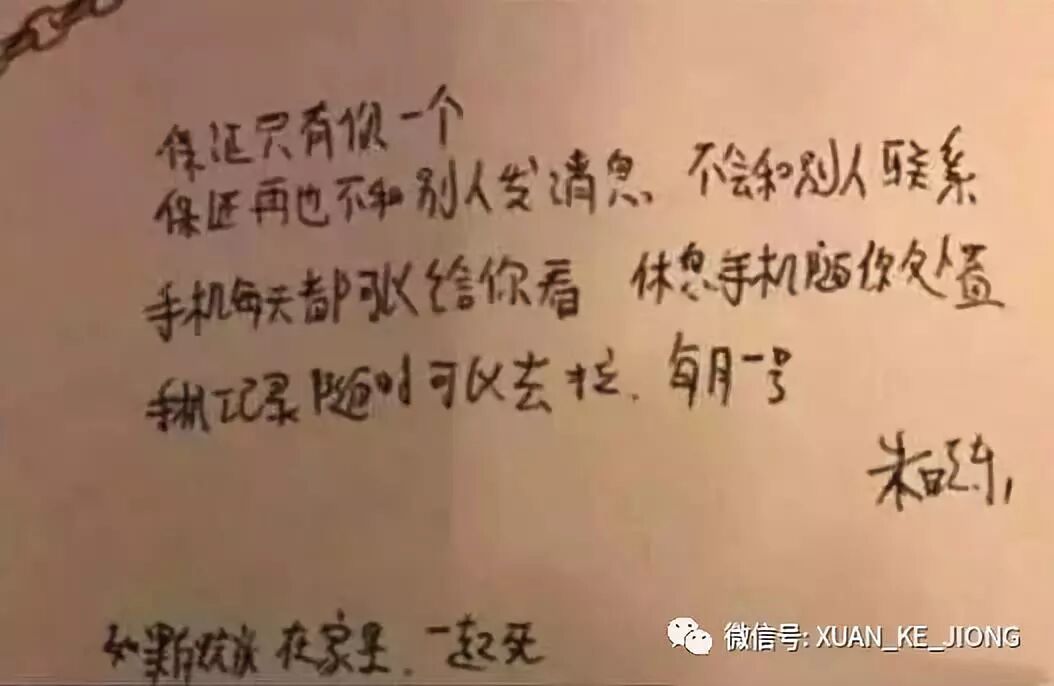 保证只有你一个
保证再也不和别人发消息 不会和别人联系
手机每天都可以给你看 休息手机随你处置
手机记录随时可以去拉. 每月一号
朱晓东,
如果 在家里. 一起死
微信号: XUAN_KE_JIONG